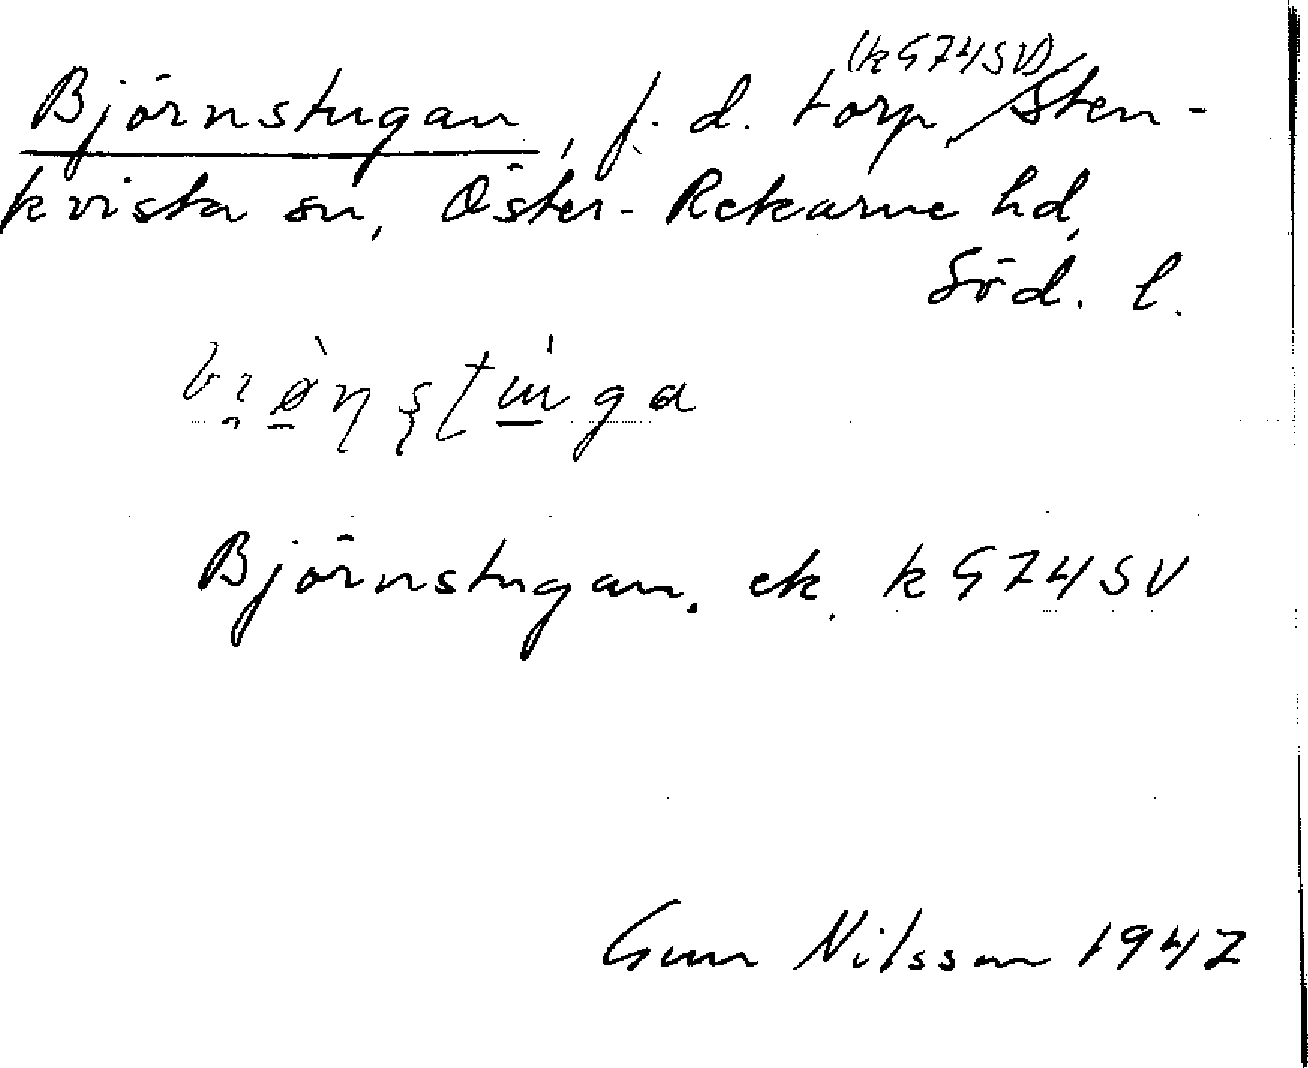 (k G74SV)
Björnstugan, f. d. torp, Sten-
kvista sn, Öster-Rekarne hd,
Söd. l.
Björnstugan. ek. k G74SV
Gun Nilsson 1947